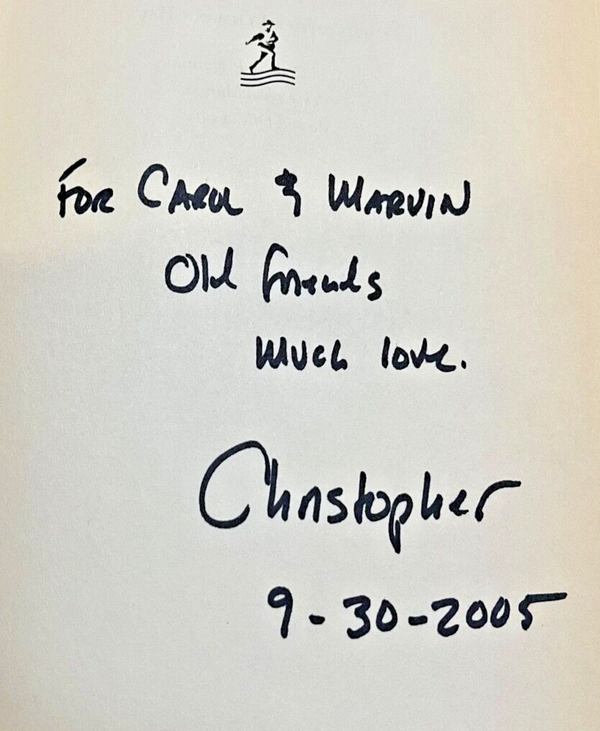 For Carol & Marvin
Old friends
Much love.
Christopher
9-30-2005